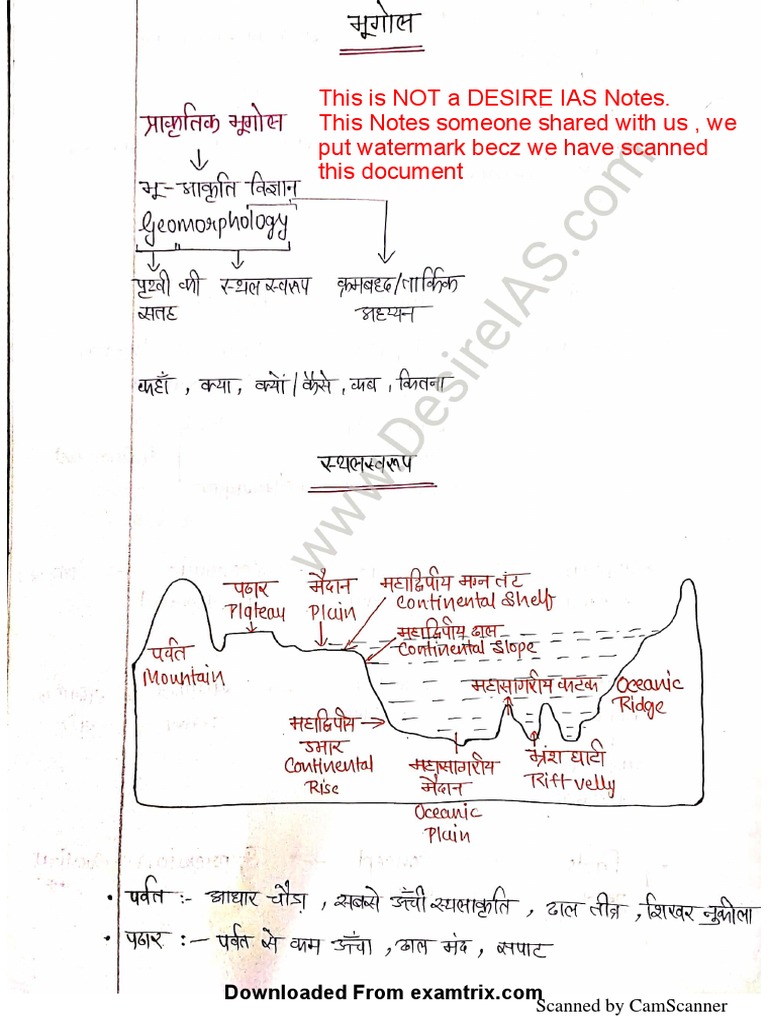 भूगोल
This is NOT a DESIRE IAS Notes.
This Notes someone shared with us , we
put watermark becz we have scanned
this document
प्राकृतिक भूगोल
भू-आकृति विज्ञान
Geomorphology
पृथ्वी की स्थल स्वरूप क्रमबद्ध/तार्किक
सतह अध्ययन
कहाँ , क्या , क्यों / कैसे , कब , कितना
www.DesireIAS.com
स्थलस्वरूप
पठार मैदान महाद्विपीय मग्न तंट
Plateau Plain Continental Shelf
महाद्विपीय ढाल
Continental Slope
पर्वत
Mountain
महासागरीय कटक Oceanic
Ridge
महाद्विपीय
उभार
Continental
Rise
महासागरीय
मैदान
Oceanic
Plain
भ्रंश घाटी
Rift velly
• पर्वत :- आधार चौड़ा , सबसे ऊँची स्थलाकृति , ढाल तीव्र , शिखर नुकीला
• पठार :- पर्वत से कम ऊँचा , ढाल मंद , सपाट
Downloaded From examtrix.com
Scanned by CamScanner